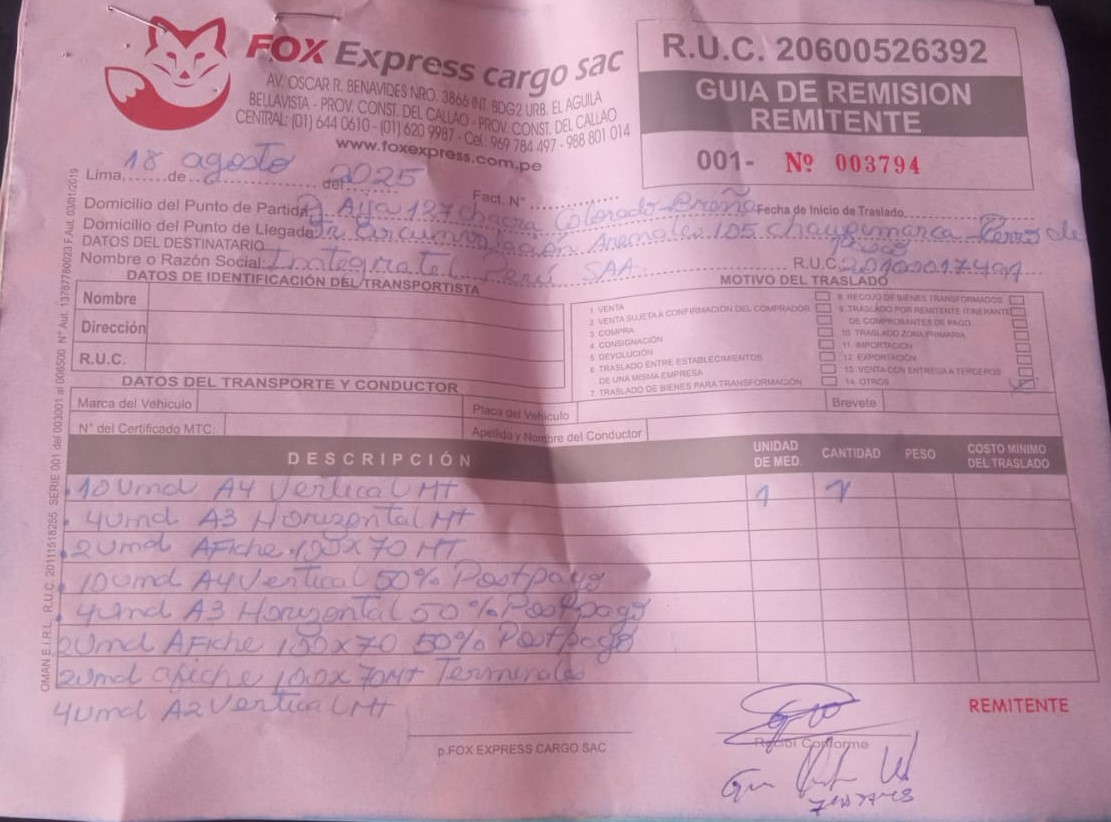 FOX Express cargo sac
AV. OSCAR R. BENAVIDES NRO. 3866 INT. BDG2 URB. EL AGUILA
BELLAVISTA - PROV. CONST. DEL CALLAO - PROV. CONST. DEL CALLAO
CENTRAL: (01) 644 0610 - (01) 620 9987 - Cel.: 969 784 497 - 988 801 014
www.foxexpress.com.pe
R.U.C. 20600526392
GUIA DE REMISION
REMITENTE
001- Nº 003794
Lima, 18 de agosto del 2025 Fact. N°
Domicilio del Punto de Partida Aya 127 chacra Colorado Breña Fecha de Inicio de Traslado
Domicilio del Punto de Llegada Circunvalación Arenales 105 chaupimarca Cerro de Pasco
DATOS DEL DESTINATARIO
Nombre o Razón Social: Integratel Perú SAA R.U.C. 20100017491
DATOS DE IDENTIFICACIÓN DEL TRANSPORTISTA
Nombre
Dirección
R.U.C.
MOTIVO DEL TRASLADO
1 VENTA
2 VENTA SUJETA A CONFIRMACIÓN DEL COMPRADOR
3 COMPRA
4 CONSIGNACIÓN
5 DEVOLUCIÓN
6 TRASLADO ENTRE ESTABLECIMIENTOS
DE UNA MISMA EMPRESA
7 TRASLADO DE BIENES PARA TRANSFORMACIÓN
8 RECOJO DE BIENES TRANSFORMADOS
9 TRASLADO POR REMITENTE ITINERANTE
DE COMPROBANTES DE PAGO
10 TRASLADO ZONA PRIMARIA
11 IMPORTACIÓN
12 EXPORTACIÓN
13 VENTA CON ENTREGA A TERCEROS
14 OTROS
DATOS DEL TRANSPORTE Y CONDUCTOR
Marca del Vehículo Placa del Vehículo Brevete
N° del Certificado MTC: Apellido y Nombre del Conductor
DESCRIPCIÓN UNIDAD DE MED. CANTIDAD PESO COSTO MÍNIMO DEL TRASLADO
10 Umd A4 Vertical MT 1 1
4Umd A3 Horizontal MT
2Umd AFiche 100x70 MT
10Umd A4 Vertical 50% Postpago
4Umd A3 Horizontal 50% Postpago
2Umd AFiche 100x70 50% Postpago
2Umd afiche 100x70 MT Terminales
4Umd A2 Vertical MT
REMITENTE
p.FOX EXPRESS CARGO SAC
Recibí Conforme